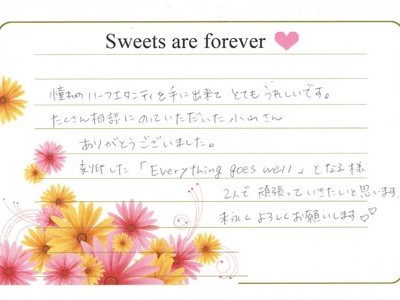 Sweets are forever
憧れのハーフエタニティを手に出来て とてもうれしいです。
たくさん相談にのっていただいた小山さん
ありがとうございました。
刻印した「Everything goes well」となる様
2人で 頑張っていきたいと思います。
末永くよろしくお願いします♡♡